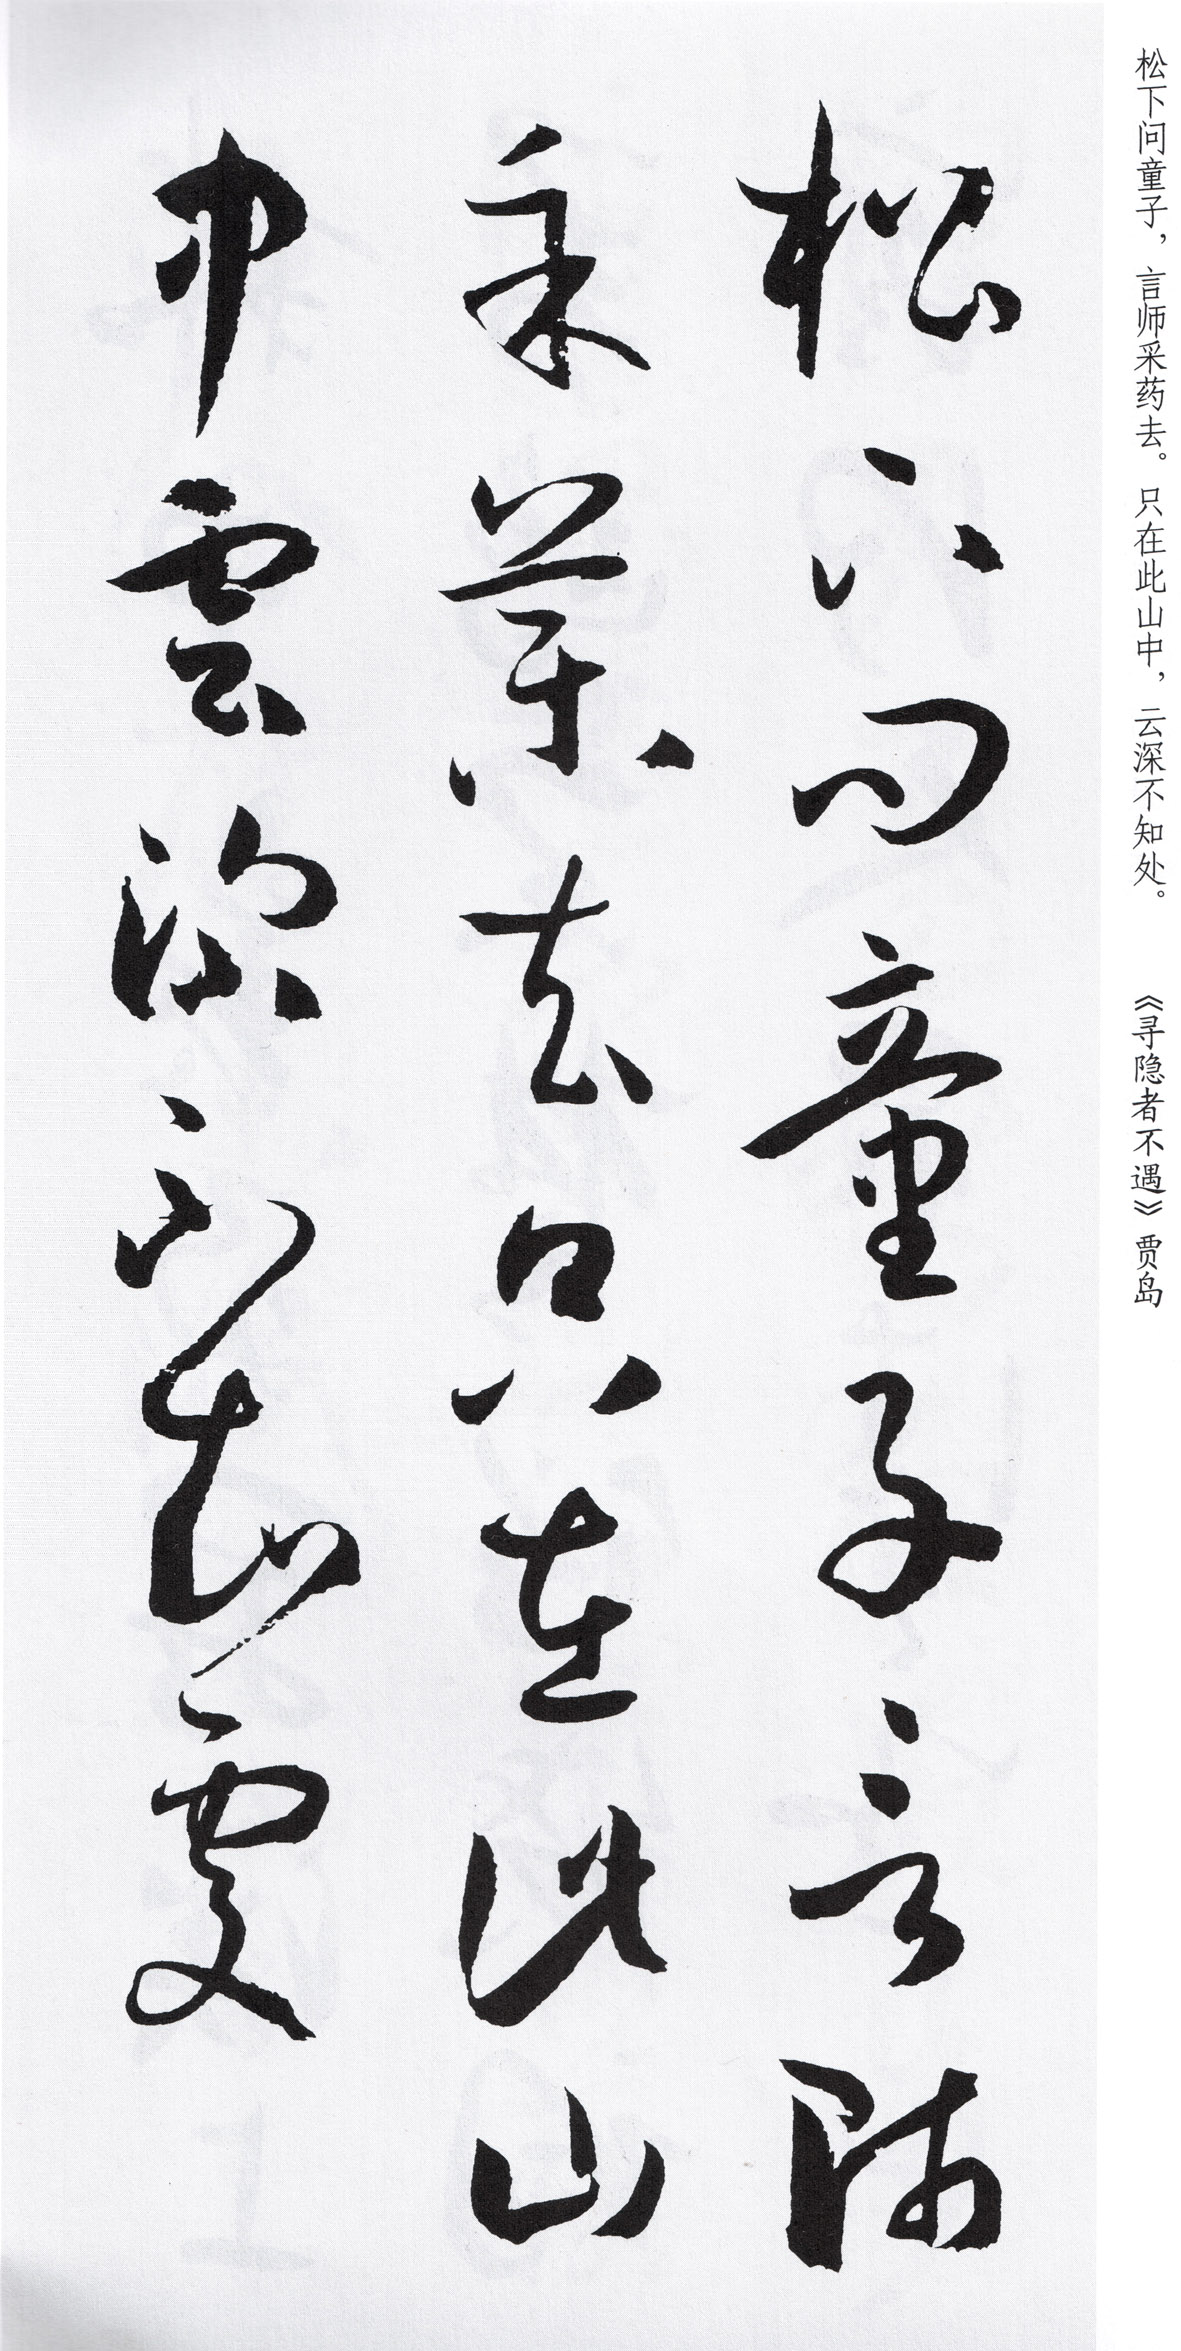 松下问童子，言师采药去。只在此山中，云深不知处。 《寻隐者不遇》贾岛
松下问童子言师
采药去只在此山
中雲深不知處